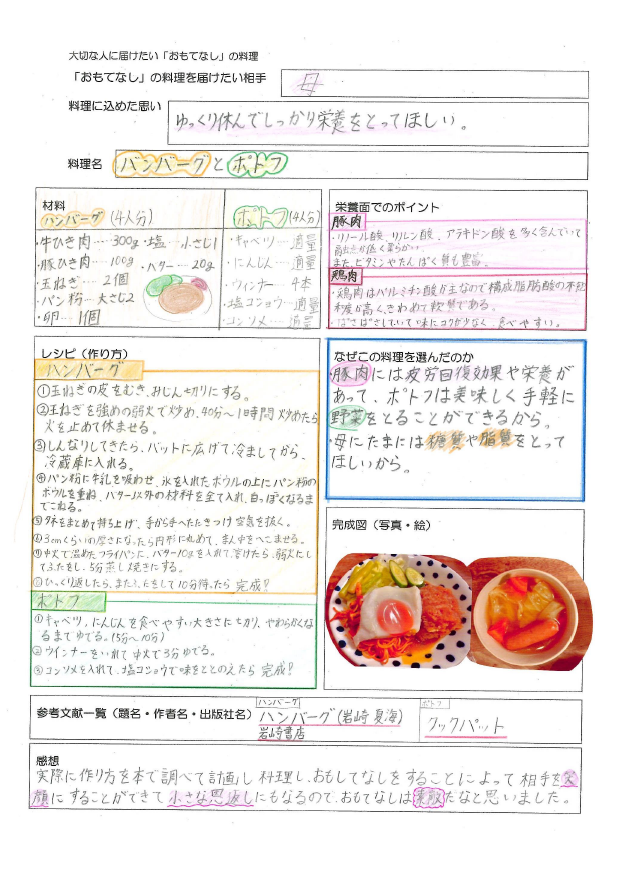 大切な人に届けたい「おもてなし」の料理
「おもてなし」の料理を届けたい相手
母
料理に込めた思い
ゆっくり休んでしっかり栄養をとってほしい。
料理名
ハンバーグとポトフ
材料
ハンバーグ(4人分)
・牛ひき肉……300g ・塩…小さじ1
・豚ひき肉……100g ・バター…20g
・玉ねぎ……2個
・パン粉…大さじ2
・卵…1個
ポトフ(4人分)
・キャベツ…適量
・にんじん…適量
・ウィンナー…4本
・塩コショウ…適量
・コンソメ…適量
栄養面でのポイント
豚肉
・リノール酸、リレン酸、アラキドン酸を多く含んでいて
融点が低く柔らかい。
また、ビタミンやたんぱく質も豊富。
鶏肉
・鶏肉はパルミチン酸が主なので構成脂肪酸の不飽
和度が高く、きわめて軟質である。
・ぱさぱさしていて味にコクが少なく、食べやすい。
レシピ(作り方)
ハンバーグ
①玉ねぎの皮をむき、みじん切りにする。
②玉ねぎを強めの弱火で炒め、40分~1時間炒めたら
火を止めて休ませる。
③しんなりしてきたら、バットに広げて冷ましてから、
冷蔵庫に入れる。
④パン粉に牛乳を吸わせ、氷を入れたボウルの上にパン粉の
ボウルを重ね、バター以外の材料を全て入れ、白っぽくなるま
でこねる。
⑤タネをまとめて持ち上げ、手から手へたたきつけ空気を抜く。
⑥3cmくらいの厚さになったら円形に丸めて、まん中をへこませる。
⑦中火で温めたフライパンに、バター10gを入れて溶けたら、弱火にし
てふたをし、5分蒸し焼きにする。
⑧ひっくり返したら、またふたをして10分待ったら完成!
ポトフ
①キャベツ、にんじんを食べやすい大きさに切り、やわらかくな
るまでゆでる。(5分~10分)
②ウインナーをいれて中火で3分ゆでる。
③コンソメを入れて、塩コショウで味をととのえたら完成!
なぜこの料理を選んだのか
・豚肉には疲労回復効果や栄養が
あって、ポトフは美味しく手軽に
野菜をとることができるから。
・母にたまには糖質や脂質をとって
ほしいから。
完成図(写真・絵)
参考文献一覧(題名・作者名・出版社名)
ハンバーグ
ハンバーグ(岩崎夏海)
岩崎書店
ポトフ
クックパット
感想
実際に作り方を本で調べて計画し料理し、おもしてなしをすることによって相手を笑
顔にすることができて小さな恩返しにもなるので、おもてなしは素敵だなと思いました。